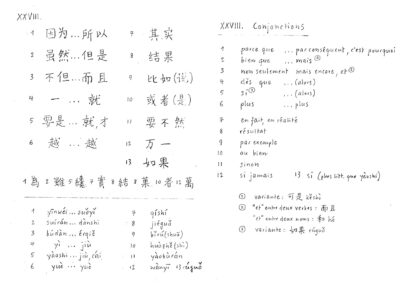 XXVIII.
1 因为...所以
2 虽然...但是
3 不但...而且
4 一...就
5 要是...就,才
6 越...越
7 其实
8 结果
9 比如(说)
10 或者(是)
11 要不然
12 万一
13 如果
1 為 2 雖 5 纔 7 實 8 結 8 菓 10 者 12 萬
1 yīnwèi...suǒyǐ
2 suīrán...dànshì
3 búdàn...érqiě
4 yì ... jiù
5 yàoshi...jiù, cái
6 yuè ... yuè
7 qíshí
8 jiéguǒ
9 bǐrú(shuō)
10 huòzhě(shì)
11 yàobùrán
12 wànyī 13 rúguǒ
XXVIII. Conjonctions
1 parce que ...par conséquent, c'est pourquoi
2 bien que ...mais ①
3 non seulement mais encore, et ②
4 dès que ...(alors)
5 si ③ ...(alors)
6 plus ...plus
7 en fait, en réalité
8 résultat
9 par exemple
10 ou bien
11 sinon
12 si jamais 13 si (plus litt. que yàoshi)
① variante: 可是 kěshì
② "et" entre deux verbes: 而且
"et" entre deux noms: 和 hé
③ variante: 如果 rúguǒ